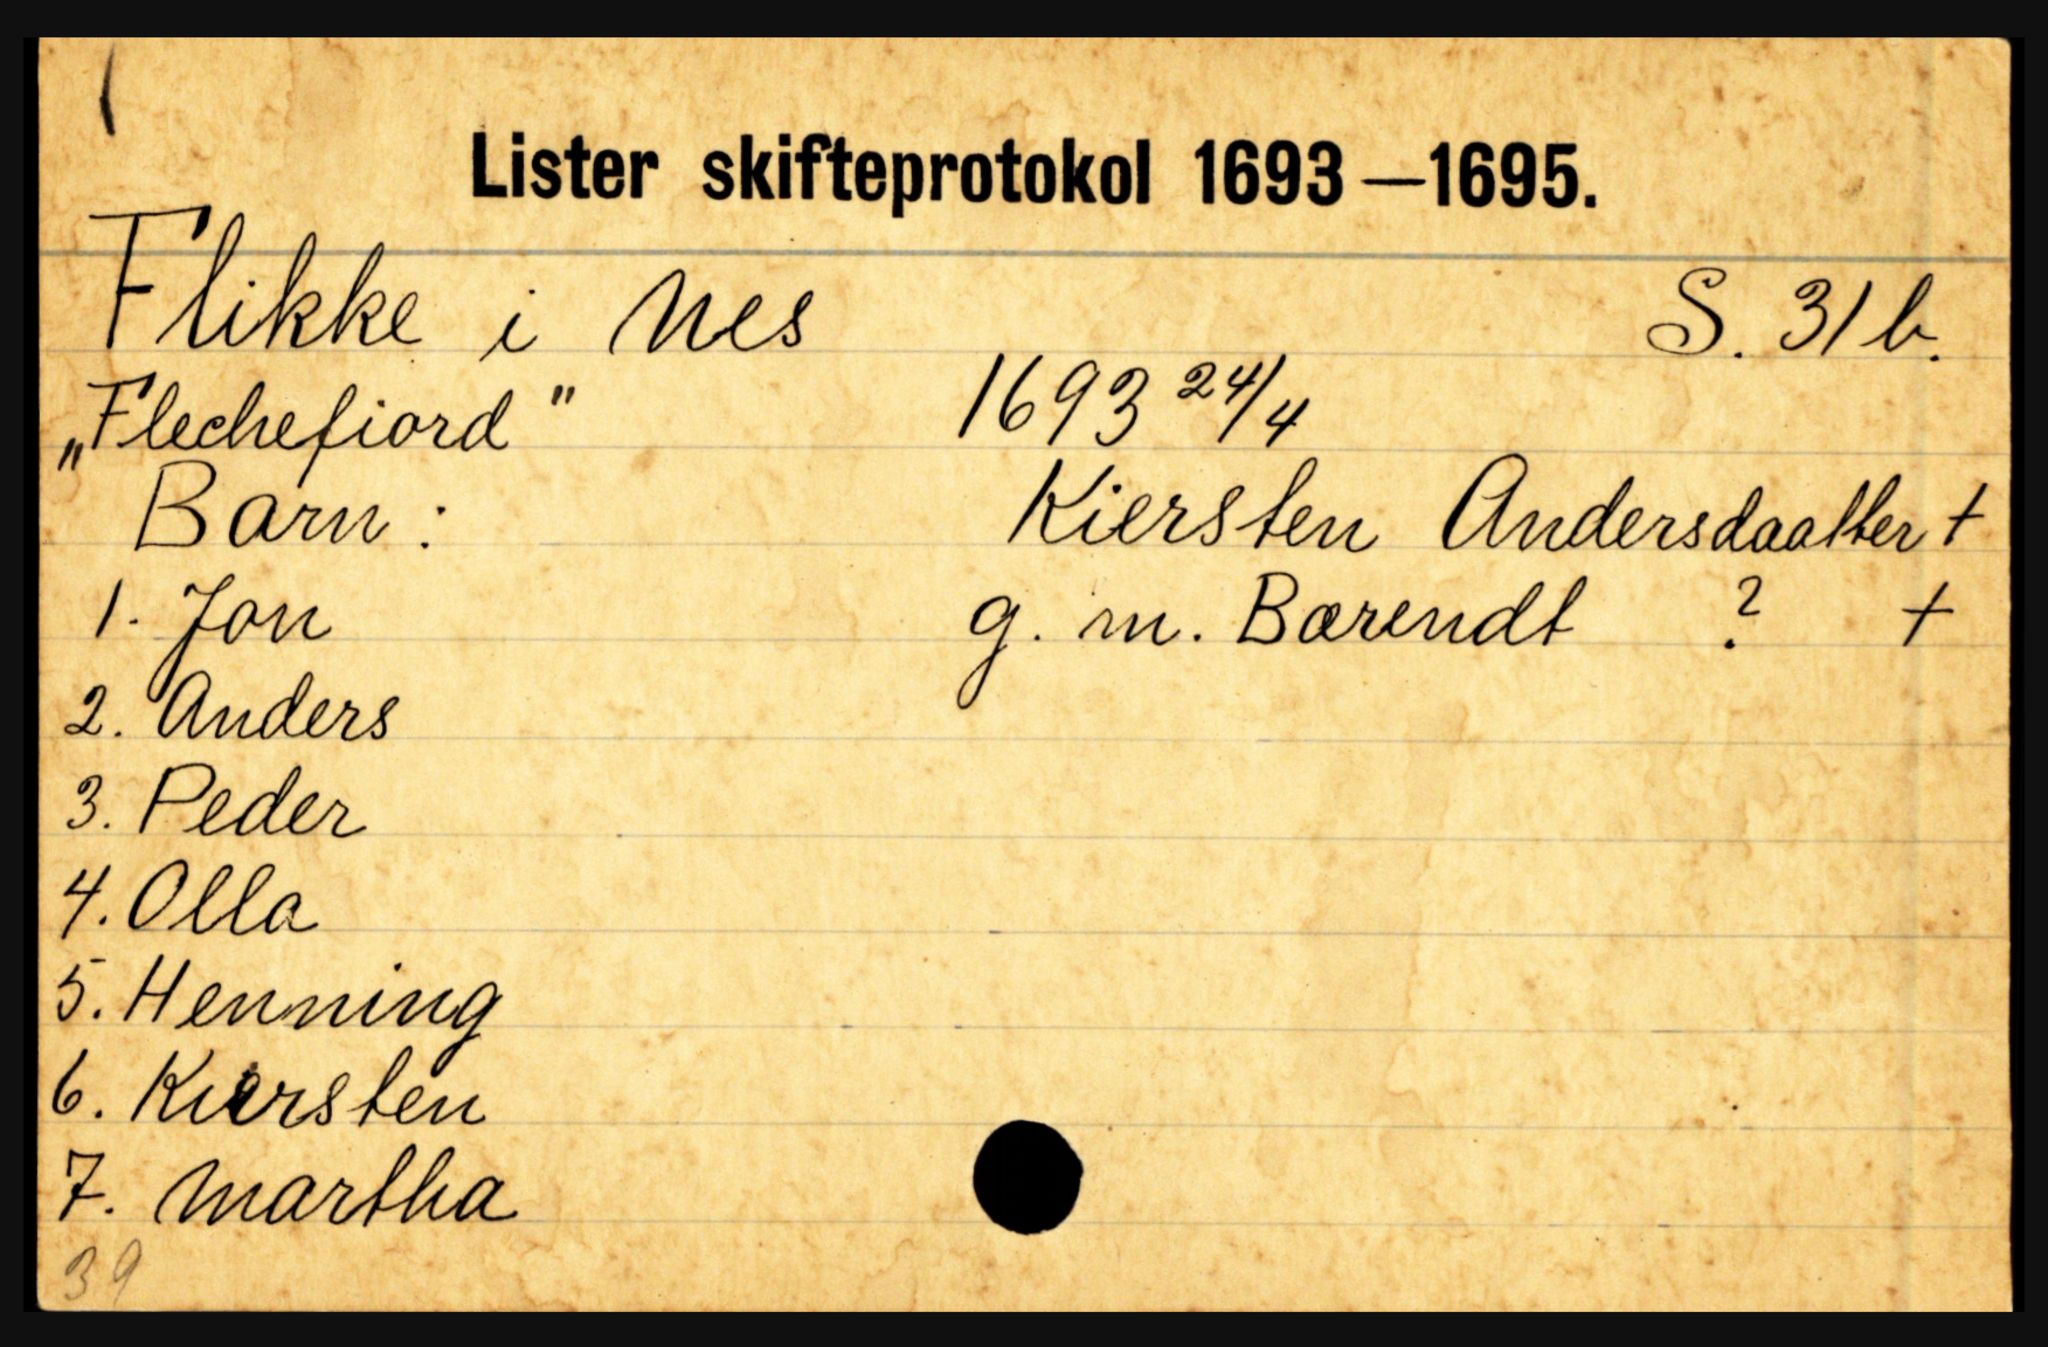 Lister skifteprotokol 1693—1695.
Flikke i Nes S. 31 b.
„Flechefiord" 1693 24/4
Barn: Kiersten Andersdaatter +
1. Jon g. m. Bærendt ? +
2. Anders
3. Peder
4. Olla
5. Henning
6. Kiersten
7. Martha
39